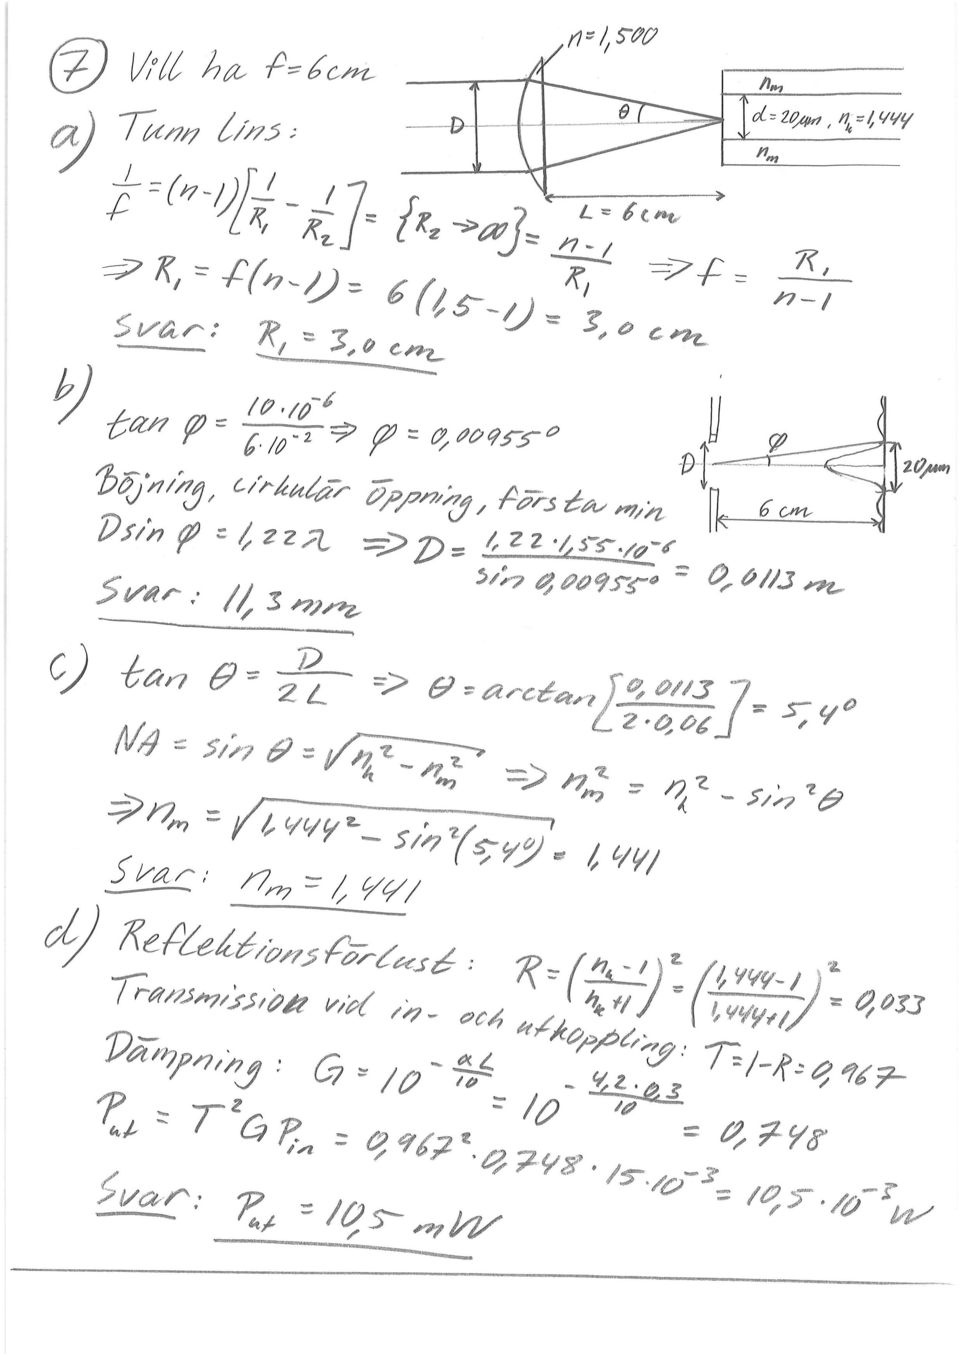 7 Vill ha f=6cm
n=1,500
D
θ
n_m
d=20μm, n_k=1,444
n_m
L=6cm
a) Tunn lins:
1/f = (n-1)[1/R₁ - 1/R₂] = {R₂→∞} = (n-1)/R₁ ⇒ f = R₁/(n-1)
⇒ R₁ = f(n-1) = 6(1,5-1) = 3,0 cm
Svar: R₁ = 3,0 cm
b)
tan φ = 10·10⁻⁶/6·10⁻² ⇒ φ = 0,00955°
D
φ
20μm
6 cm
Böjning, cirkulär öppning, första min
Dsin φ = 1,22λ ⇒ D = 1,22·1,55·10⁻⁶/sin 0,00955° = 0,0113 m
Svar: 11,3 mm
c) tan θ = D/2L ⇒ θ = arctan[0,0113/2·0,06] = 5,4°
NA = sin θ = √(n_k² - n_m²) ⇒ n_m² = n_k² - sin²θ
⇒ n_m = √(1,444² - sin²(5,4°)) = 1,441
Svar: n_m = 1,441
d) Reflektionsförlust: R = ((n_k-1)/(n_k+1))² = ((1,444-1)/(1,444+1))² = 0,033
Transmission vid in- och utkoppling: T=1-R=0,967
Dämpning: G = 10^(-αL/10) = 10^(-4,2·0,3/10) = 0,748
P_ut = T²GP_in = 0,967²·0,748·15·10⁻³ = 10,5·10⁻³ W
Svar: P_ut = 10,5 mW